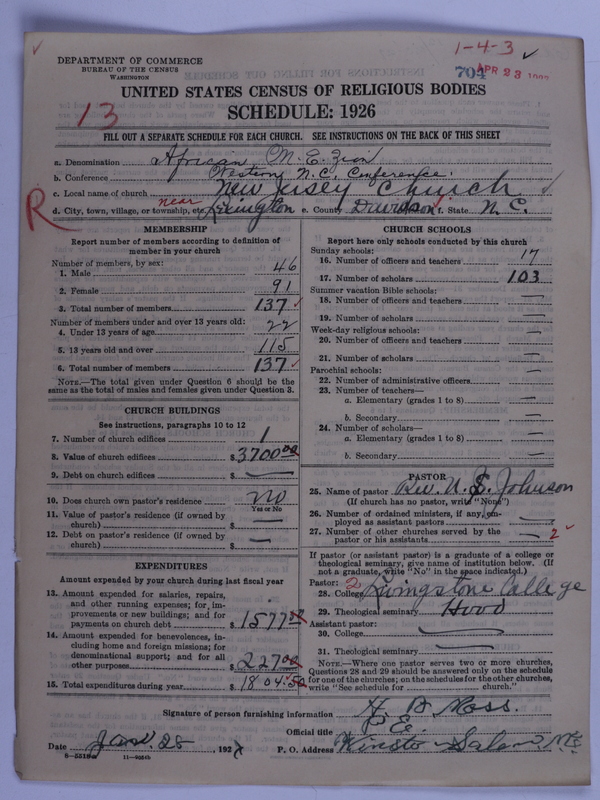 1-4-3
DEPARTMENT OF COMMERCE
BUREAU OF THE CENSUS
WASHINGTON
704 APR 23
UNITED STATES CENSUS OF RELIGIOUS BODIES
13
SCHEDULE: 1926
FILL OUT A SEPARATE SCHEDULE FOR EACH CHURCH. SEE INSTRUCTIONS ON THE BACK OF THIS SHEET
a. Denomination African M. E. Zion
b. Conference Western N.C. Conference.
c. Local name of church New Jersey Church
R d. City, town, village, or township, etc. near Lexington e. County Davidson f. State N.C.
MEMBERSHIP
Report number of members according to definition of
member in your church
Number of members, by sex:
1. Male 46
2. Female 91
3. Total number of members 137
Number of members under and over 13 years old:
4. Under 13 years of age 22
5. 13 years old and over 115
6. Total number of members 137
NOTE.—The total given under Question 6 should be the
same as the total of males and females given under Question 3.
CHURCH BUILDINGS
See instructions, paragraphs 10 to 12
7. Number of church edifices 1
8. Value of church edifices $ 3700 00
9. Debt on church edifices $ —
10. Does church own pastor's residence No
Yes or No
11. Value of pastor's residence (if owned by
church) $ —
12. Debt on pastor's residence (if owned by
church) $ —
EXPENDITURES
Amount expended by your church during last fiscal year
13. Amount expended for salaries, repairs,
and other running expenses; for im-
provements or new buildings; and for
payments on church debt $ 1577 50
14. Amount expended for benevolences, in-
cluding home and foreign missions; for
denominational support; and for all
other purposes $ 227 00
15. Total expenditures during year $ 1804.50
CHURCH SCHOOLS
Report here only schools conducted by this church
Sunday schools:
16. Number of officers and teachers 17
17. Number of scholars 103
Summer vacation Bible schools:
18. Number of officers and teachers —
19. Number of scholars —
Week-day religious schools:
20. Number of officers and teachers —
21. Number of scholars —
Parochial schools:
22. Number of administrative officers —
23. Number of teachers—
a. Elementary (grades 1 to 8) —
b. Secondary —
24. Number of scholars—
a. Elementary (grades 1 to 8) —
b. Secondary —
PASTOR
25. Name of pastor Rev. N. S. Johnson
(If church has no pastor, write "None")
26. Number of ordained ministers, if any, em-
ployed as assistant pastors —
27. Number of other churches served by the
pastor or his assistants — 2
If pastor (or assistant pastor) is a graduate of a college or
theological seminary, give name of institution below. (If
not a graduate, write "No" in the space indicated.)
Pastor: 2
28. College Livingstone College
29. Theological seminary Hood
Assistant pastor:
30. College —
31. Theological seminary —
NOTE.—Where one pastor serves two or more churches,
Questions 28 and 29 should be answered only on the schedule
for one of the churches; on the schedules for the other churches,
write "See schedule for church."
Signature of person furnishing information
Official title P.E.
Date Jan. 28, 192 P. O. Address Winston-Salem N.C.
8-5518a 11-9554b